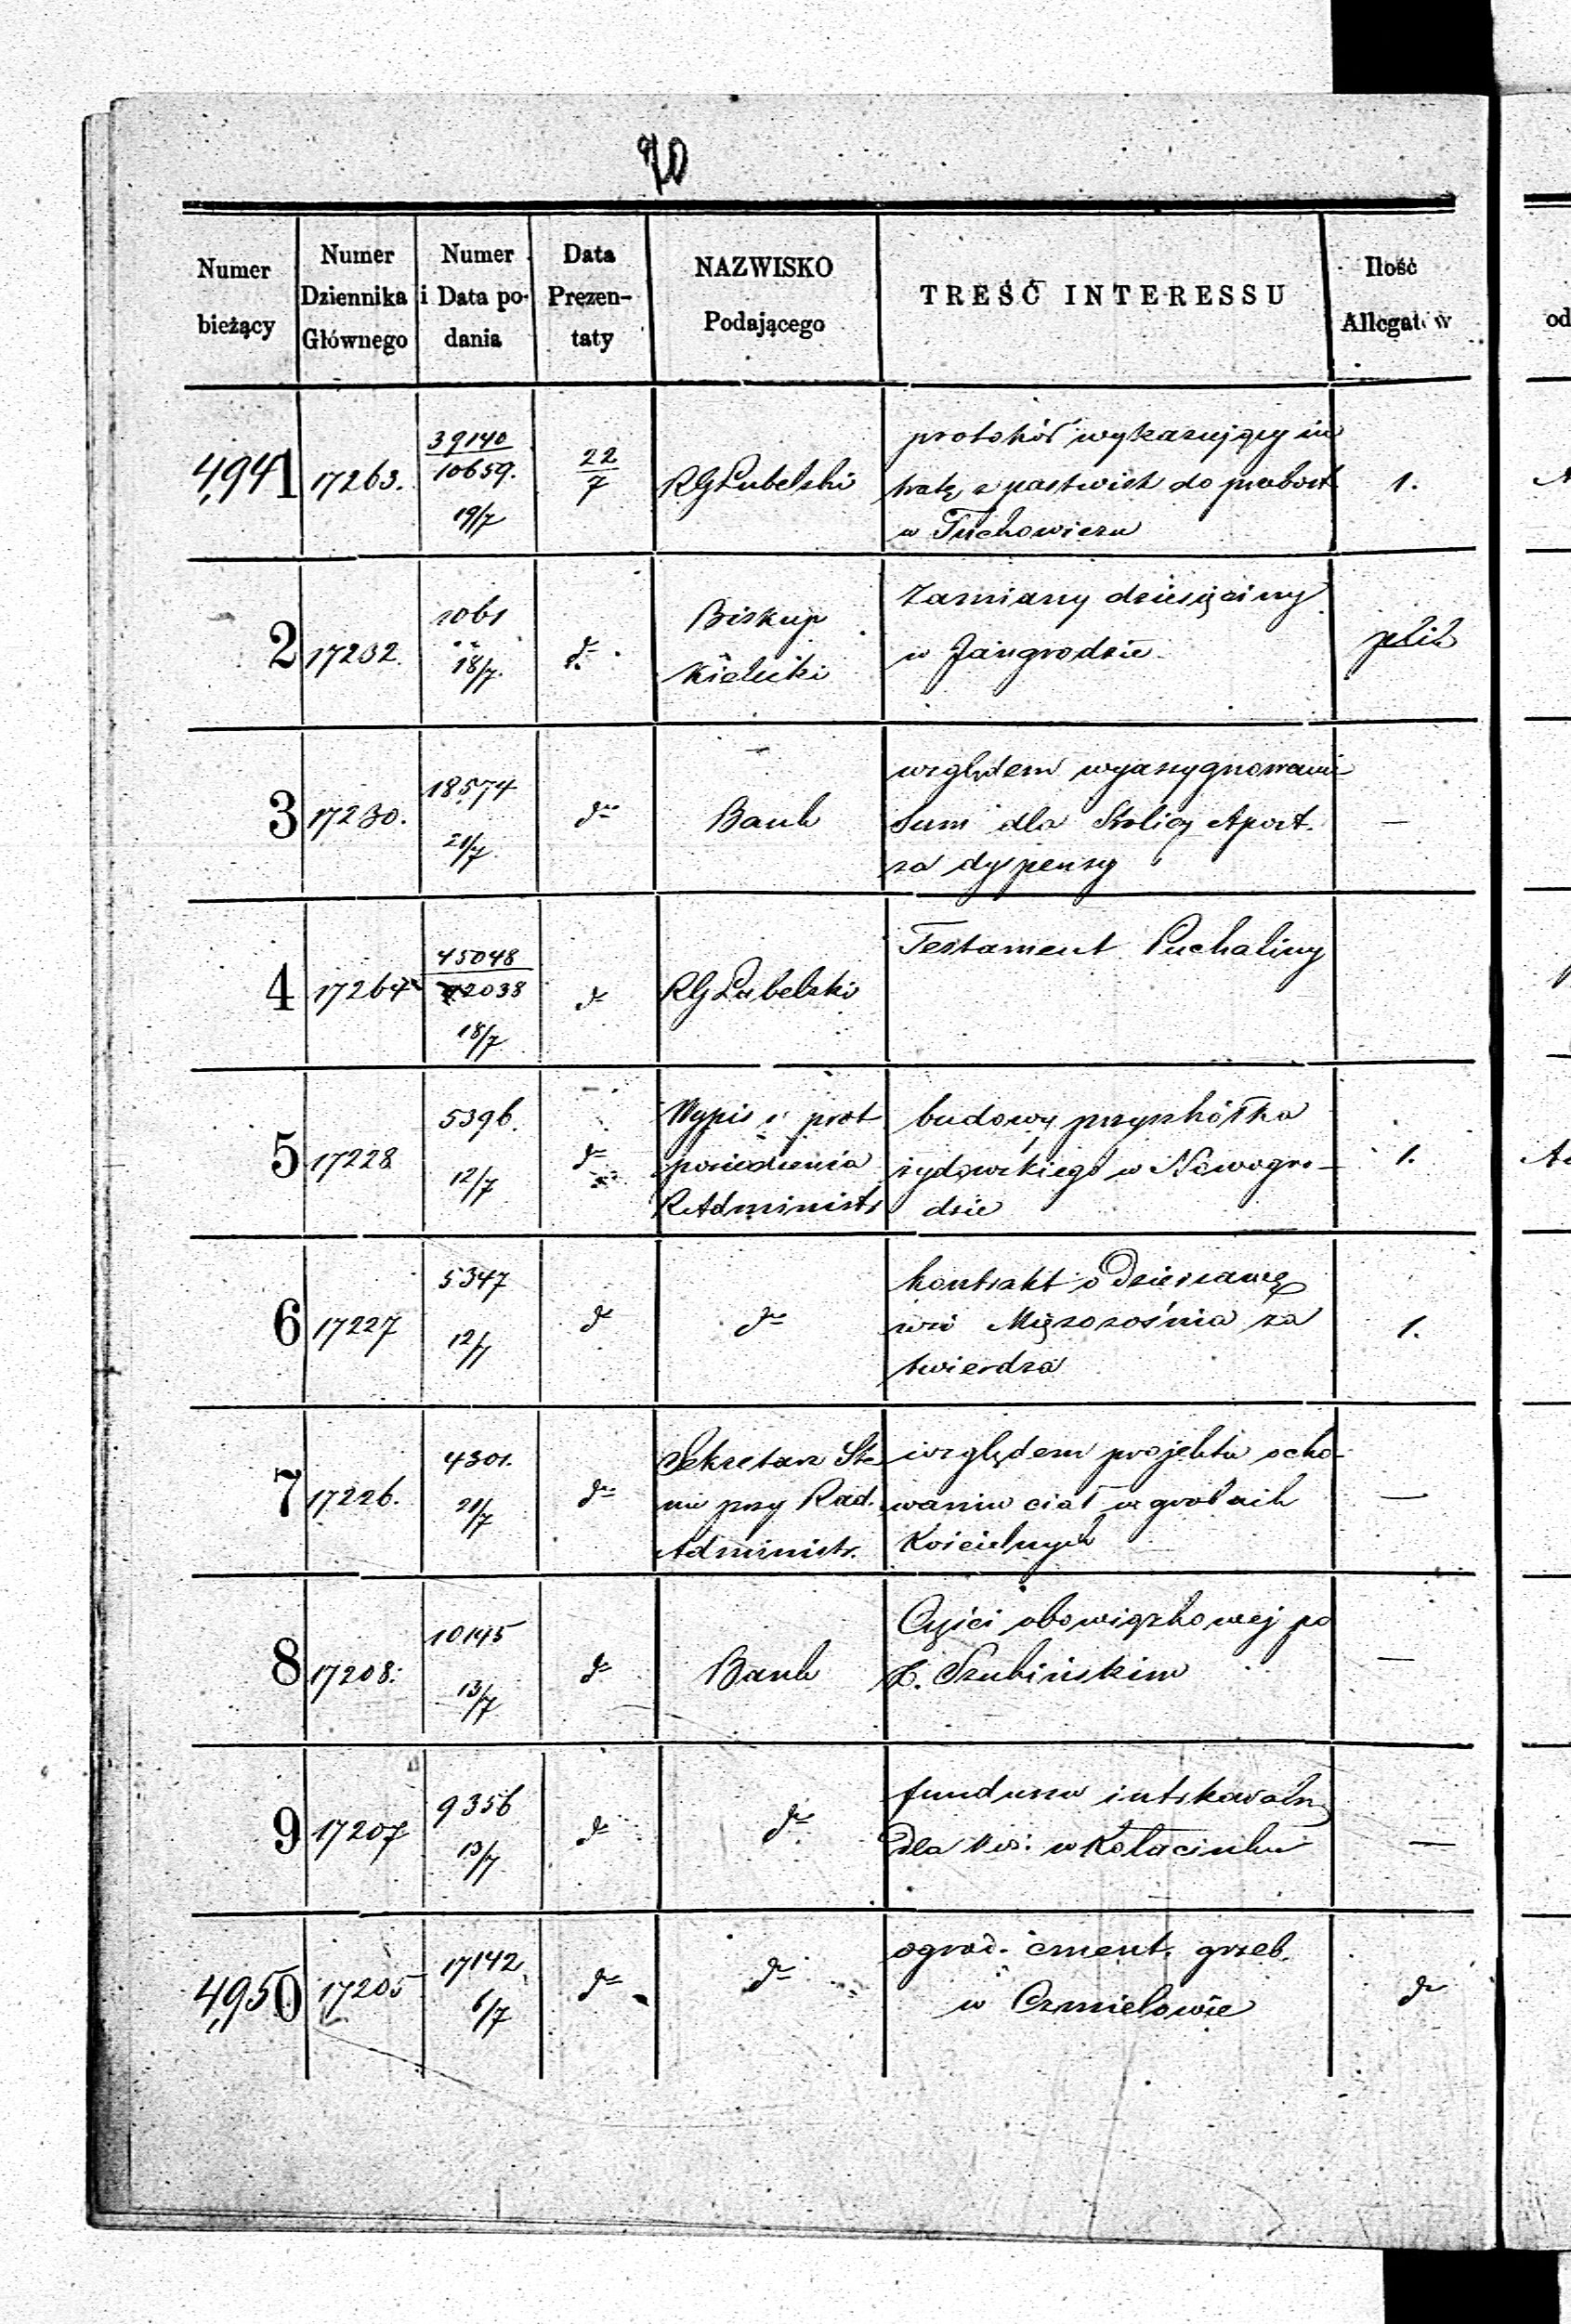 70
Numer bieżący
Numer Dziennika Głównego
Numer i Data podania
Data Prezentaty
NAZWISKO Podającego
TREŚĆ INTERESSU
Ilość Allegatów
4,941 17263. 39140 / 10659. 19/7 22/7 RG Lubelski
protokół wykazujący in
tratę z pastwisk do probost.
w Tuchowiczu
1.
2 17232. 1061 18/7. do
Biskup
Kielecki
Zamiany dziesięciny
w Jangrodzie
plik
3 17230. 18574 21/7. do Bank
względem wyasygnowania
Sum dla Stolicy Apost.
za dyspensy
—
4 17264 45048 / 12038 18/7 do RG Lubelski
Testament Puchaliny
5 17228 5396. 12/7 do
Wypis z prot
posiedzenia
R Administr
budowy przyszkółka
żydowskiego w Nowogro-
dzie
1.
6 17227 5347 12/7 do do
kontrakt o dzierżawę
wsi za
twierdza
1.
7 17226. 4301. 21/7 do
Sekretarz Sta
nu przy Rad.
Administr.
względem projektu ocho-
waniu ciał w grobach
Kościelnych
—
8 17208. 10145 13/7 do Bank
Części obowiązkowej po
X. Szubińskim
—
9 17207 9356 13/7 do do
funduszu interkalarn
dla w Kołacinku
—
4,950 17205 17142 6/7 do do
ogrod. cment. grzeb.
w Czmielowie
do